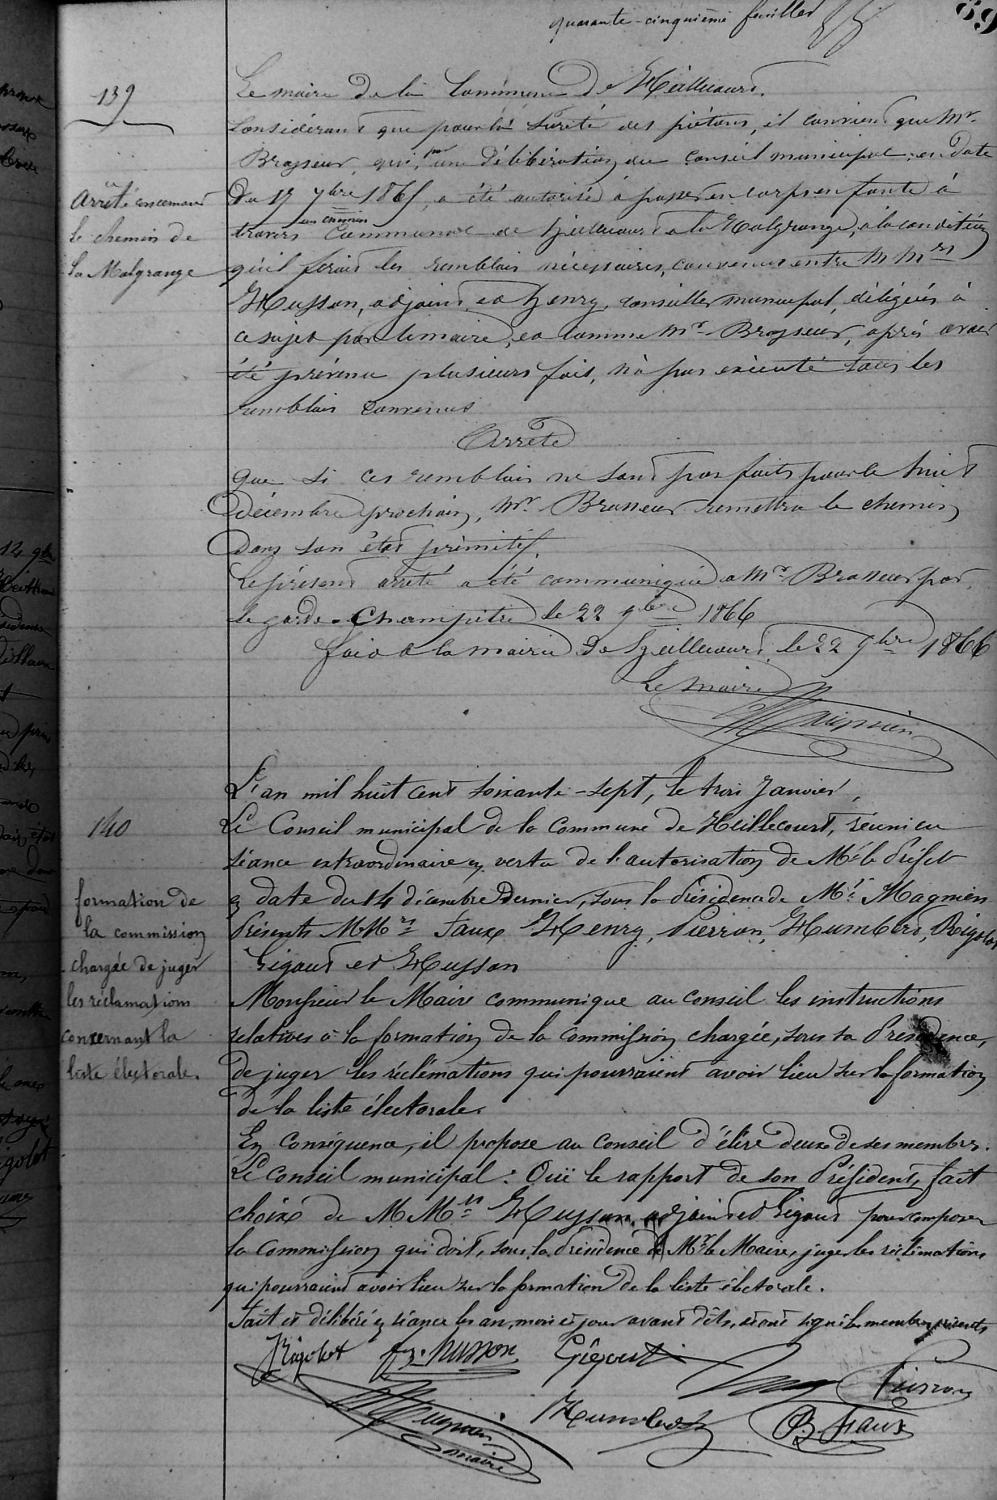 quarante-cinquième feuillet
69
139
Le maire de la Commune de Heillecourt.
Considérant que pour la sureté des piétons, il convient que Mr
Brasseur, qui, par une délibération du Conseil municipal, en date
Arrêté concernant
le chemin de
la Malgrange
Du 17 7bre 1865, a été autorisé à passer en corps en fonte à
travers un chemin communal de Heillecourt à la Malgrange, à la condition
qu'il ferait les remblais nécessaires, convenus entre M Mrs
Husson, adjoint et Henry, conseiller municipal, délégués à
ce sujet par le maire, et comme Mr Brasseur, après avoir
été prévenu plusieurs fois, n'a pas exécuté tous les
remblais convenus
Arrête
que si ces remblais ne sont pas faits pour le huit
Décembre prochain, Mr Brasseur remettra le chemin
Dans son état primitif.
Le présent arrêté a été communiqué à Mr Brasseur par
le garde-Champêtre le 22 9bre 1866
fait à la mairie de Heillecourt, le 22 9bre 1866
Le Maire
Magnien
140
formation de
la commission
chargée de juger
les réclamations
concernant la
liste électorale.
L'an mil huit cent soixante-sept, le trois Janvier,
Le Conseil municipal de la Commune de Heillecourt, réuni en
séance extraordinaire en vertu de l'autorisation de Mr le Préfet
en date du 14 décembre Dernier, sous la Présidence de Mr Magnien
Présents M.Mrs Faux Henry, Pierron, Humbert, Rigolot
Gigout et Husson
Monsieur le Maire communique au conseil les instructions
relatives à la formation de la Commission chargée, sous sa Présidence,
De juger les réclamations qui pourraient avoir lieu sur la formation
de la liste électorale.
En conséquence, il propose au Conseil d'élire deux de ses membres.
Le Conseil municipal: Ouï le rapport de son Président, fait
choix de M Mrs Husson, adjoint et Gigout pour composer
la Commission qui doit, sous la Présidence de Mr le Maire, juger les réclamations
qui pourraient avoir lieu sur la formation de la liste électorale.
Fait et délibéré en séance les an, mois et jour avant dits, et ont signé les membres présents
JRigolot Husson Gigout Henry Pierron
Magnien maire Humbert B Faux